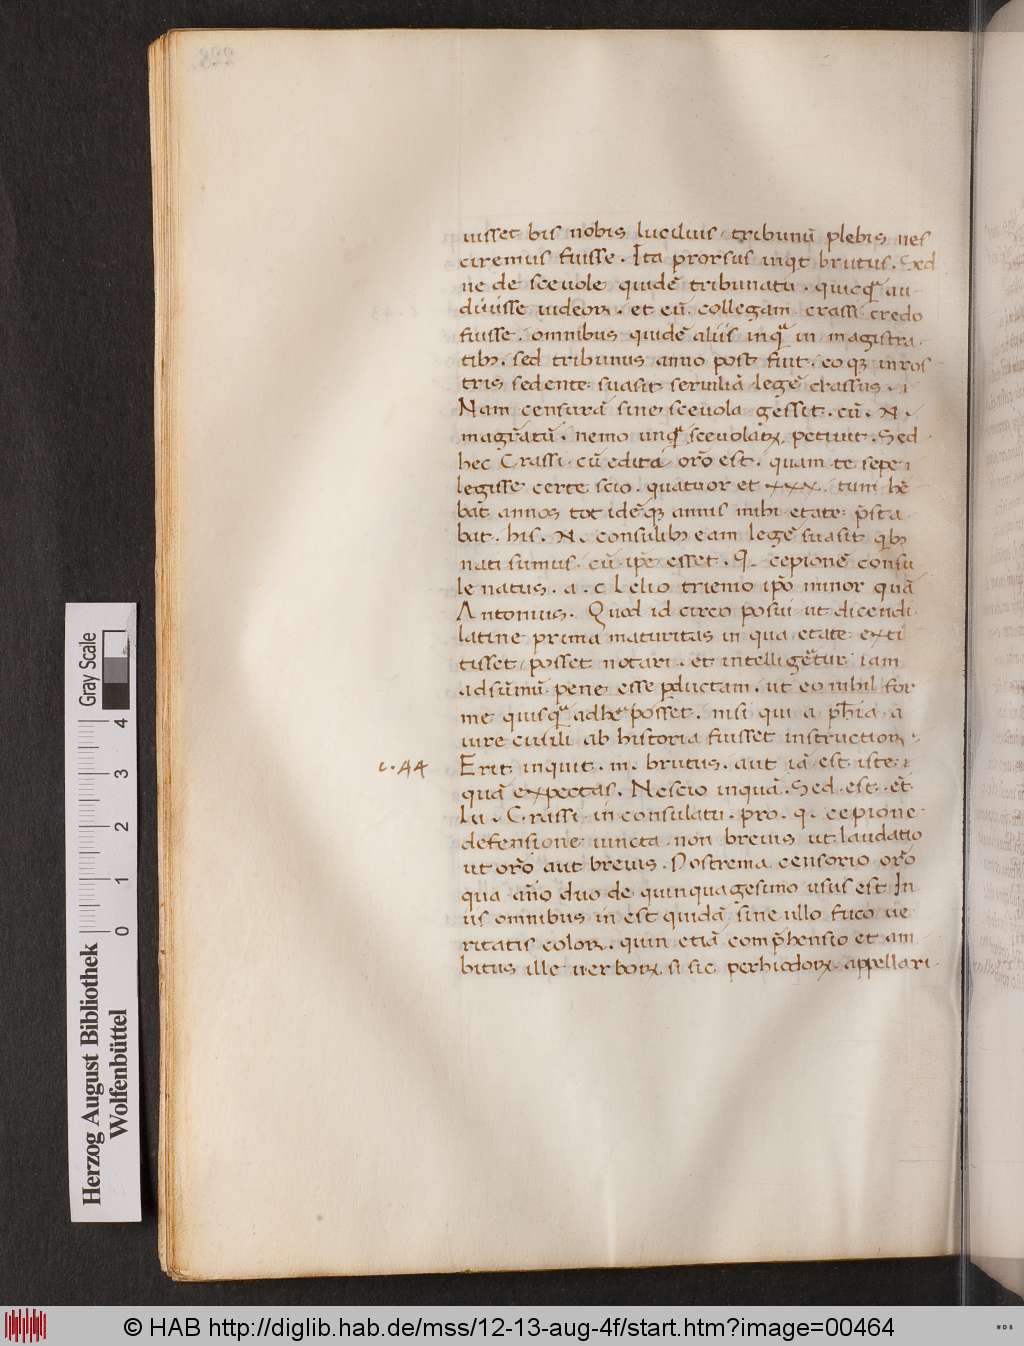 uisset bis nobis lucduis tribunū plebis nes
ciremus fuisse. Ita prorsus inqt brutus. Sed
ne de sceuole quidē tribunatu. quicq̄ au
diuisse uideor. et eū collegam crassi credo
fuisse. omnibus quidē aliis inq̄ in magistra
tibȝ. sed tribunus anno post fuit. eoqȝ in ros
tris sedente suasit seruiliā legē crassus.
Nam censurā sine sceuola gessit. cū. N.
magr̄atū. nemo unq̄ sceuolaꝝ petiuit. Sed
hec Crassi cū edita or̄o est. quam te sepe
legisse certe scio. quatuor et xxx. tum hē
bat annos tot idēqȝ annis mihi etate p̄sta
bat. his. N. consulibȝ eam legē suasit qibȝ
nati sumus. cū ip̄e esset. Q. cepionē consu
le natus. a. c Lelio triennio ip̄o minor quā
Antonius. Quod id circo posui ut dicendi
latine prima maturitas in qua etate exti
tisset posset notari. et intelligēetur iam
ad sūmū pene esse ꝑductam. ut eo nihil fer
me quisq̄ adhē posset. nisi qui a ph̄ia a
iure ciuili ab historia fuisset instructior.
c. 44
Erit inquit. m. brutus. aut iā est iste
quā expectas. Nescio inquā. Sed est et
Lu. Crassi in consulatu. pro. q. cepione
defensione iuncta non breuis ut laudatio
ut or̄o aut breuis. Postrema censorio or̄o
qua an̄o duo de quinquagesimo usus est In
iis omnibus in est quidā sine ullo fuco ue
ritatis color. quin etiā comp̄hensio et am
bitus ille uerboꝝ si sic perhiodoꝝ appellari
Gray Scale
4
3
2
1
0
Herzog August Bibliothek
Wolfenbüttel
© HAB http://diglib.hab.de/mss/12-13-aug-4f/start.htm?image=00464